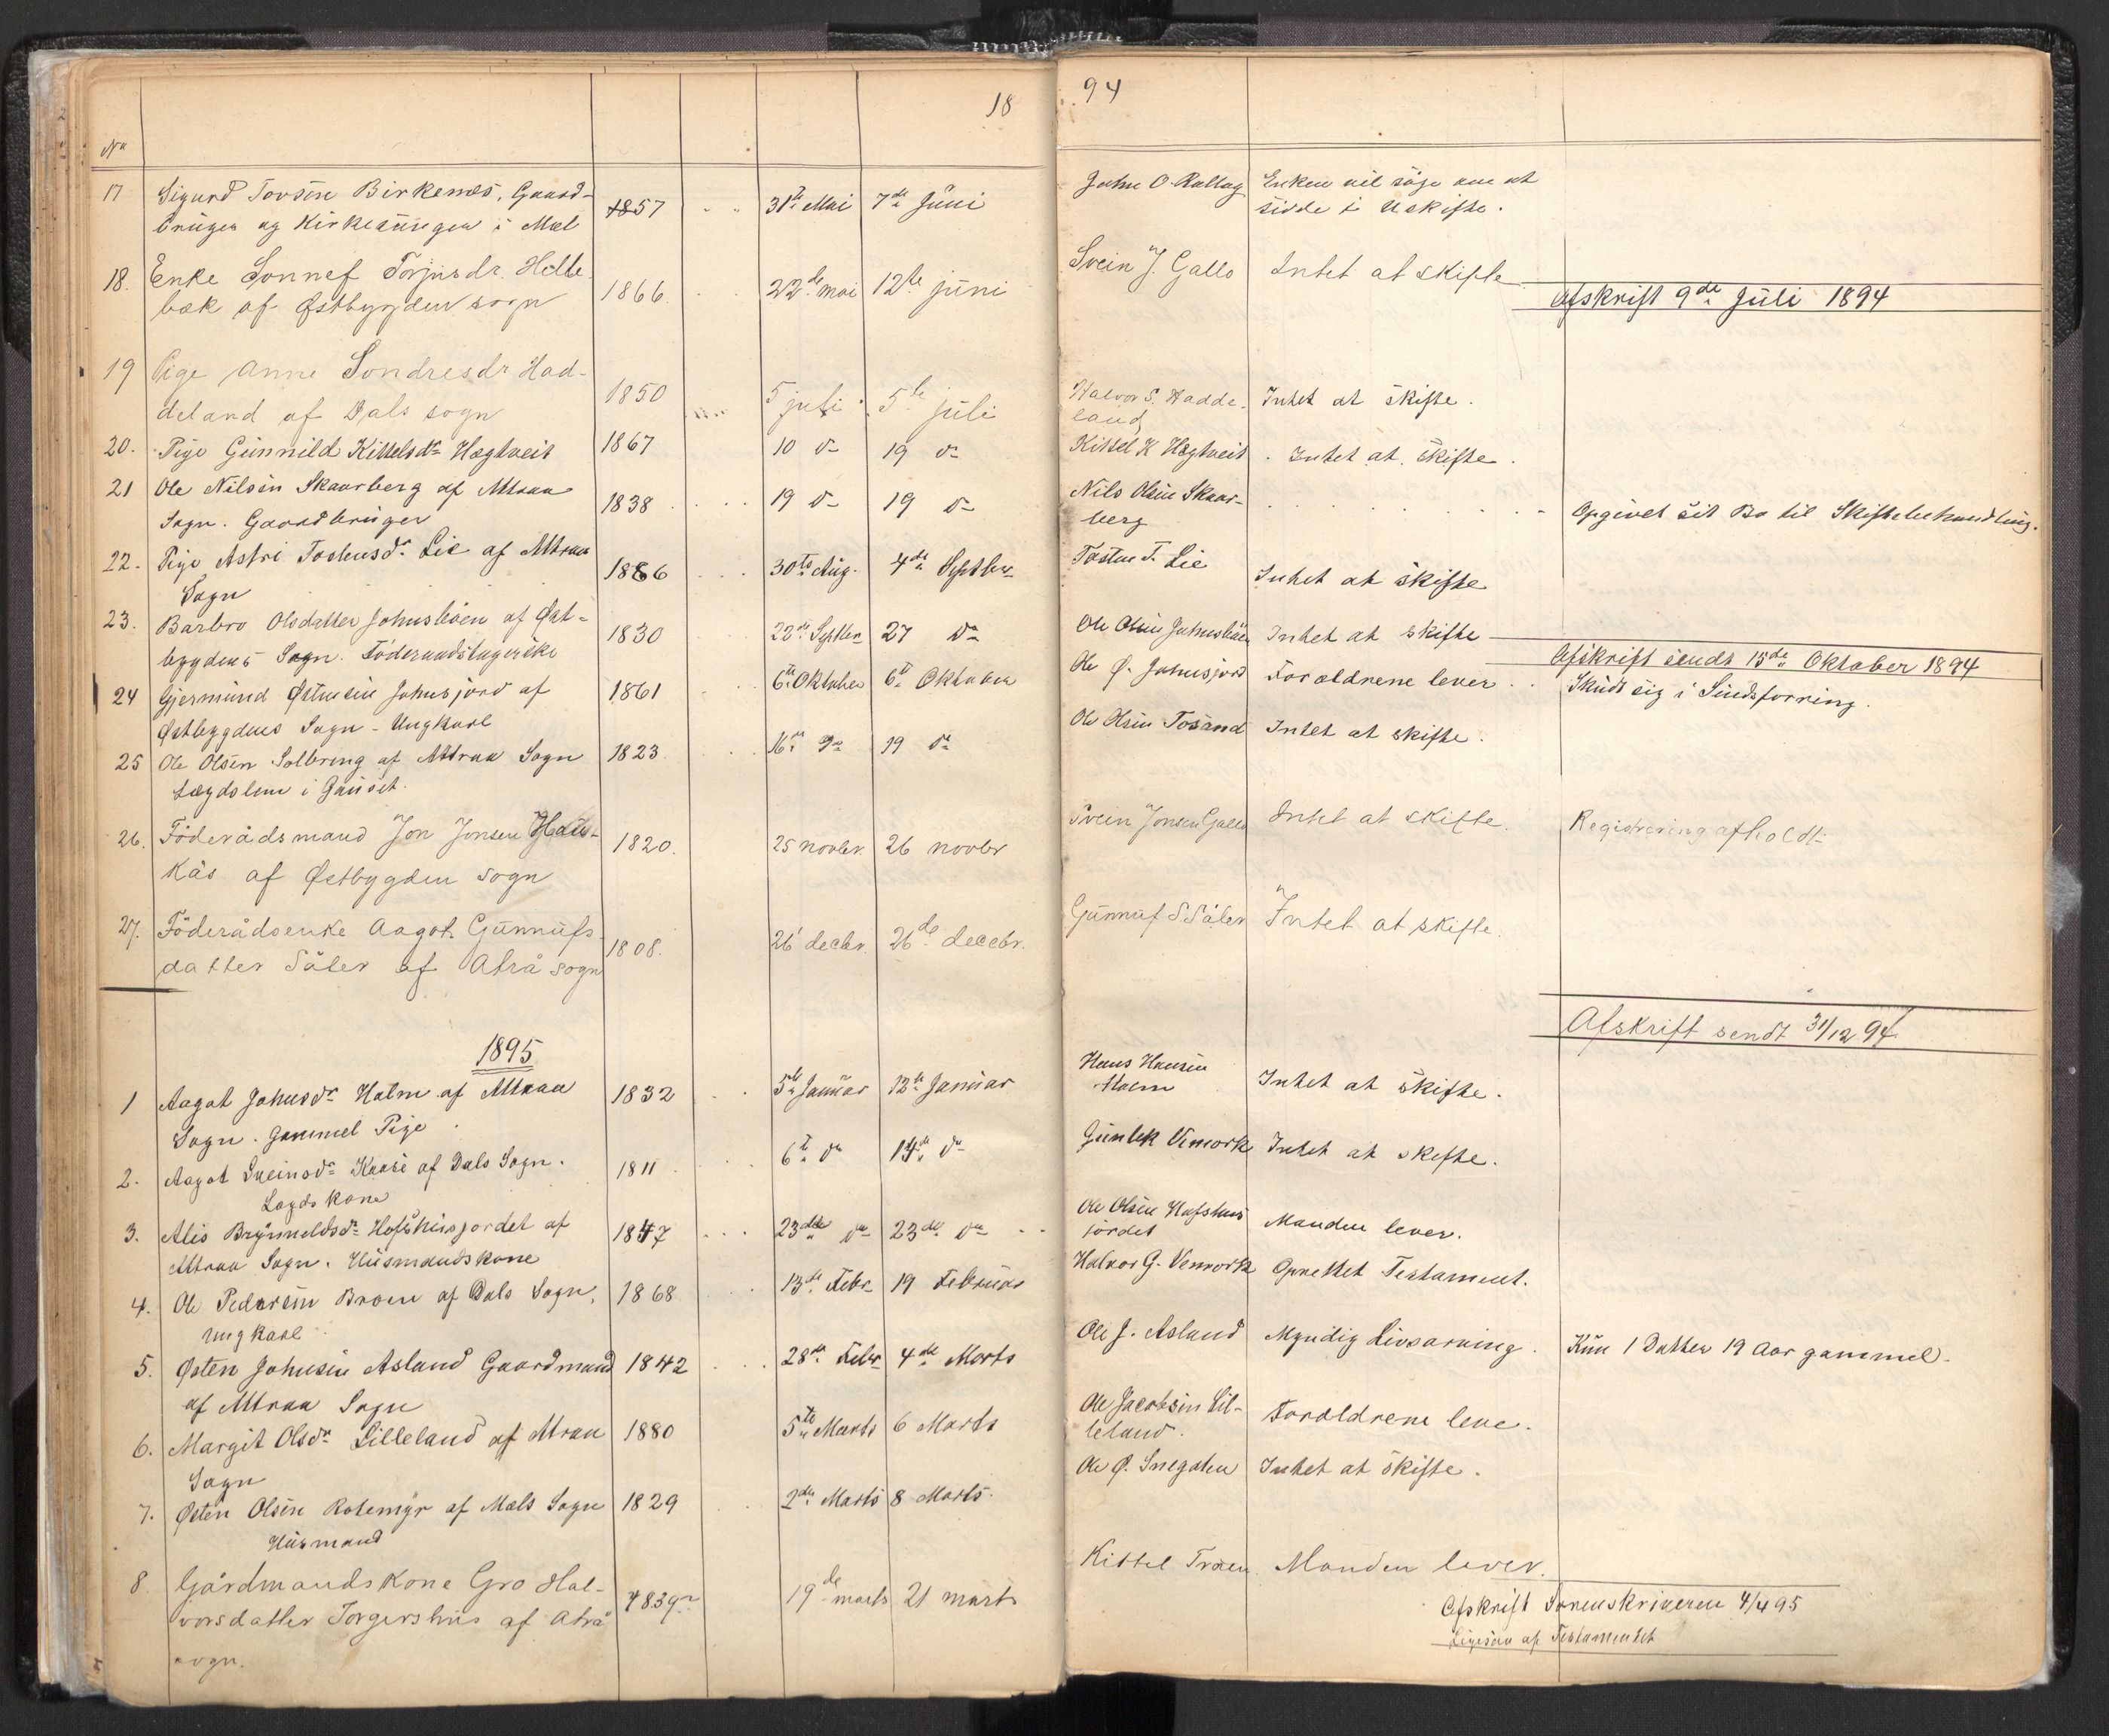 18
94
No
17 Sigurd Tovsen Birkenes, Gaard- 1857 31te Mai 7de Juni John O. Rollag Enken vil söge om at
bruger og Kirkesanger i Mæl sidde i Uskifte.
18. Enke Gonnef Torjusdr. Helle- 1866 22de mai 12te juni Svein J. Gallo Intet at skifte
bæk af Østbygden sogn
Afskrift 9de Juli 1894
19 Pige Anne Sondresdr Had- 1850 5 juli 5te juli Halvor S. Hadde- Intet at skifte.
deland af Dals sogn land
20. Pige Gunnild Kittelsdr Hægtveit 1867 10 do 19 do Kittel K Hægtveit Intet at skifte.
21 Ole Nilsen Skaarberg af Attraa 1838 19 do 19 do Nils Olsen Skaar- Opgivet sit Bo til Skiftebehandling.
Sogn. Gaardbruger berg
22. Pige Astri Tostensdr Lie af Attraa 1886 30te Aug. 4de Septbr Tosten T. Lie Intet at skifte
Sogn
23. Barbro Olsdatter Johnsböen af Øst- 1830 22de Septbr 27 do Ole Olsen Johnsböen Intet at skifte
bygdens Sogn. Föderaadstagerske
Afskrift sendt 15de Oktober 1894
24 Gjermund Østensen Johnsjord af 1861 6te Oktober 6te Oktober Ole Ø. Johnsjord Forældrene lever Skudt sig i Sindsforvirring.
Østbygdens Sogn - Ungkarl
25 Ole Olsen Solbring af Attraa Sogn 1823 16de do 19 do Ole Olsen Tosand Intet at skifte.
Lægdslem i Gauset.
26. Föderådsmand Jon Jonsen Hau- 1820. 25 novbr. 26 novbr Svein Jonsen Gallo Intet at skifte. Registrering afholdt
kås af Østbygden sogn
27. Föderådsenke Aagot Gunnufs- 1808. 26 decbr. 26de decbr. Gunnuf S Såler Intet at skifte.
datter Såler af Atrå sogn
Afskrift sendt 31/12 94
1895
1 Aagot Johnsdr Holm af Attraa 1832 5te Januar 12te Januar Hans Hansen Intet at skifte.
Sogn. Gammel Pige Holm
2. Aagot Sveinsdr Kaase af Dals Sogn. 1811 6te do 14de do Gunlek Vemork Intet at skifte.
Lægdskone
3. Alis Brynneldsdr Hofshusjordet af 1847 23de do 23de do Ole Olsen Hofshus Manden lever.
Attraa Sogn. Husmandskone jördet
4. Ole Pedersen Broen af Dals Sogn, 1868 13de Febr 19 Februar Halvor G. Vemork Oprettet Testament.
Ungkarl
5. Østen Johnsen Asland Gaardmand 1842 28de Febr 4de Marts Ole J. Asland Myndig Livsarving. Kun 1 Datter 19 Aar gammel.
af Attraa Sogn
6. Margit Olsdr Lilleland af Atraa 1880 5te Marts 6 Marts Ole Jacobsen Lil- Forældrene leve.
Sogn leland.
7. Østen Olsen Rotemyr af Mæls Sogn 1829 2den Marts 8 Marts. Ole Ø. Intet at skifte.
Husmand
8. Gårdmandskone Gro Hal- 1839 19de marts 21 marts Kittel Træen Manden lever.
vorsdatter Torgershus af Atrå
sogn.
Afskrift Sorenskriveren 4/4 95
Ligesaa af Testamentet